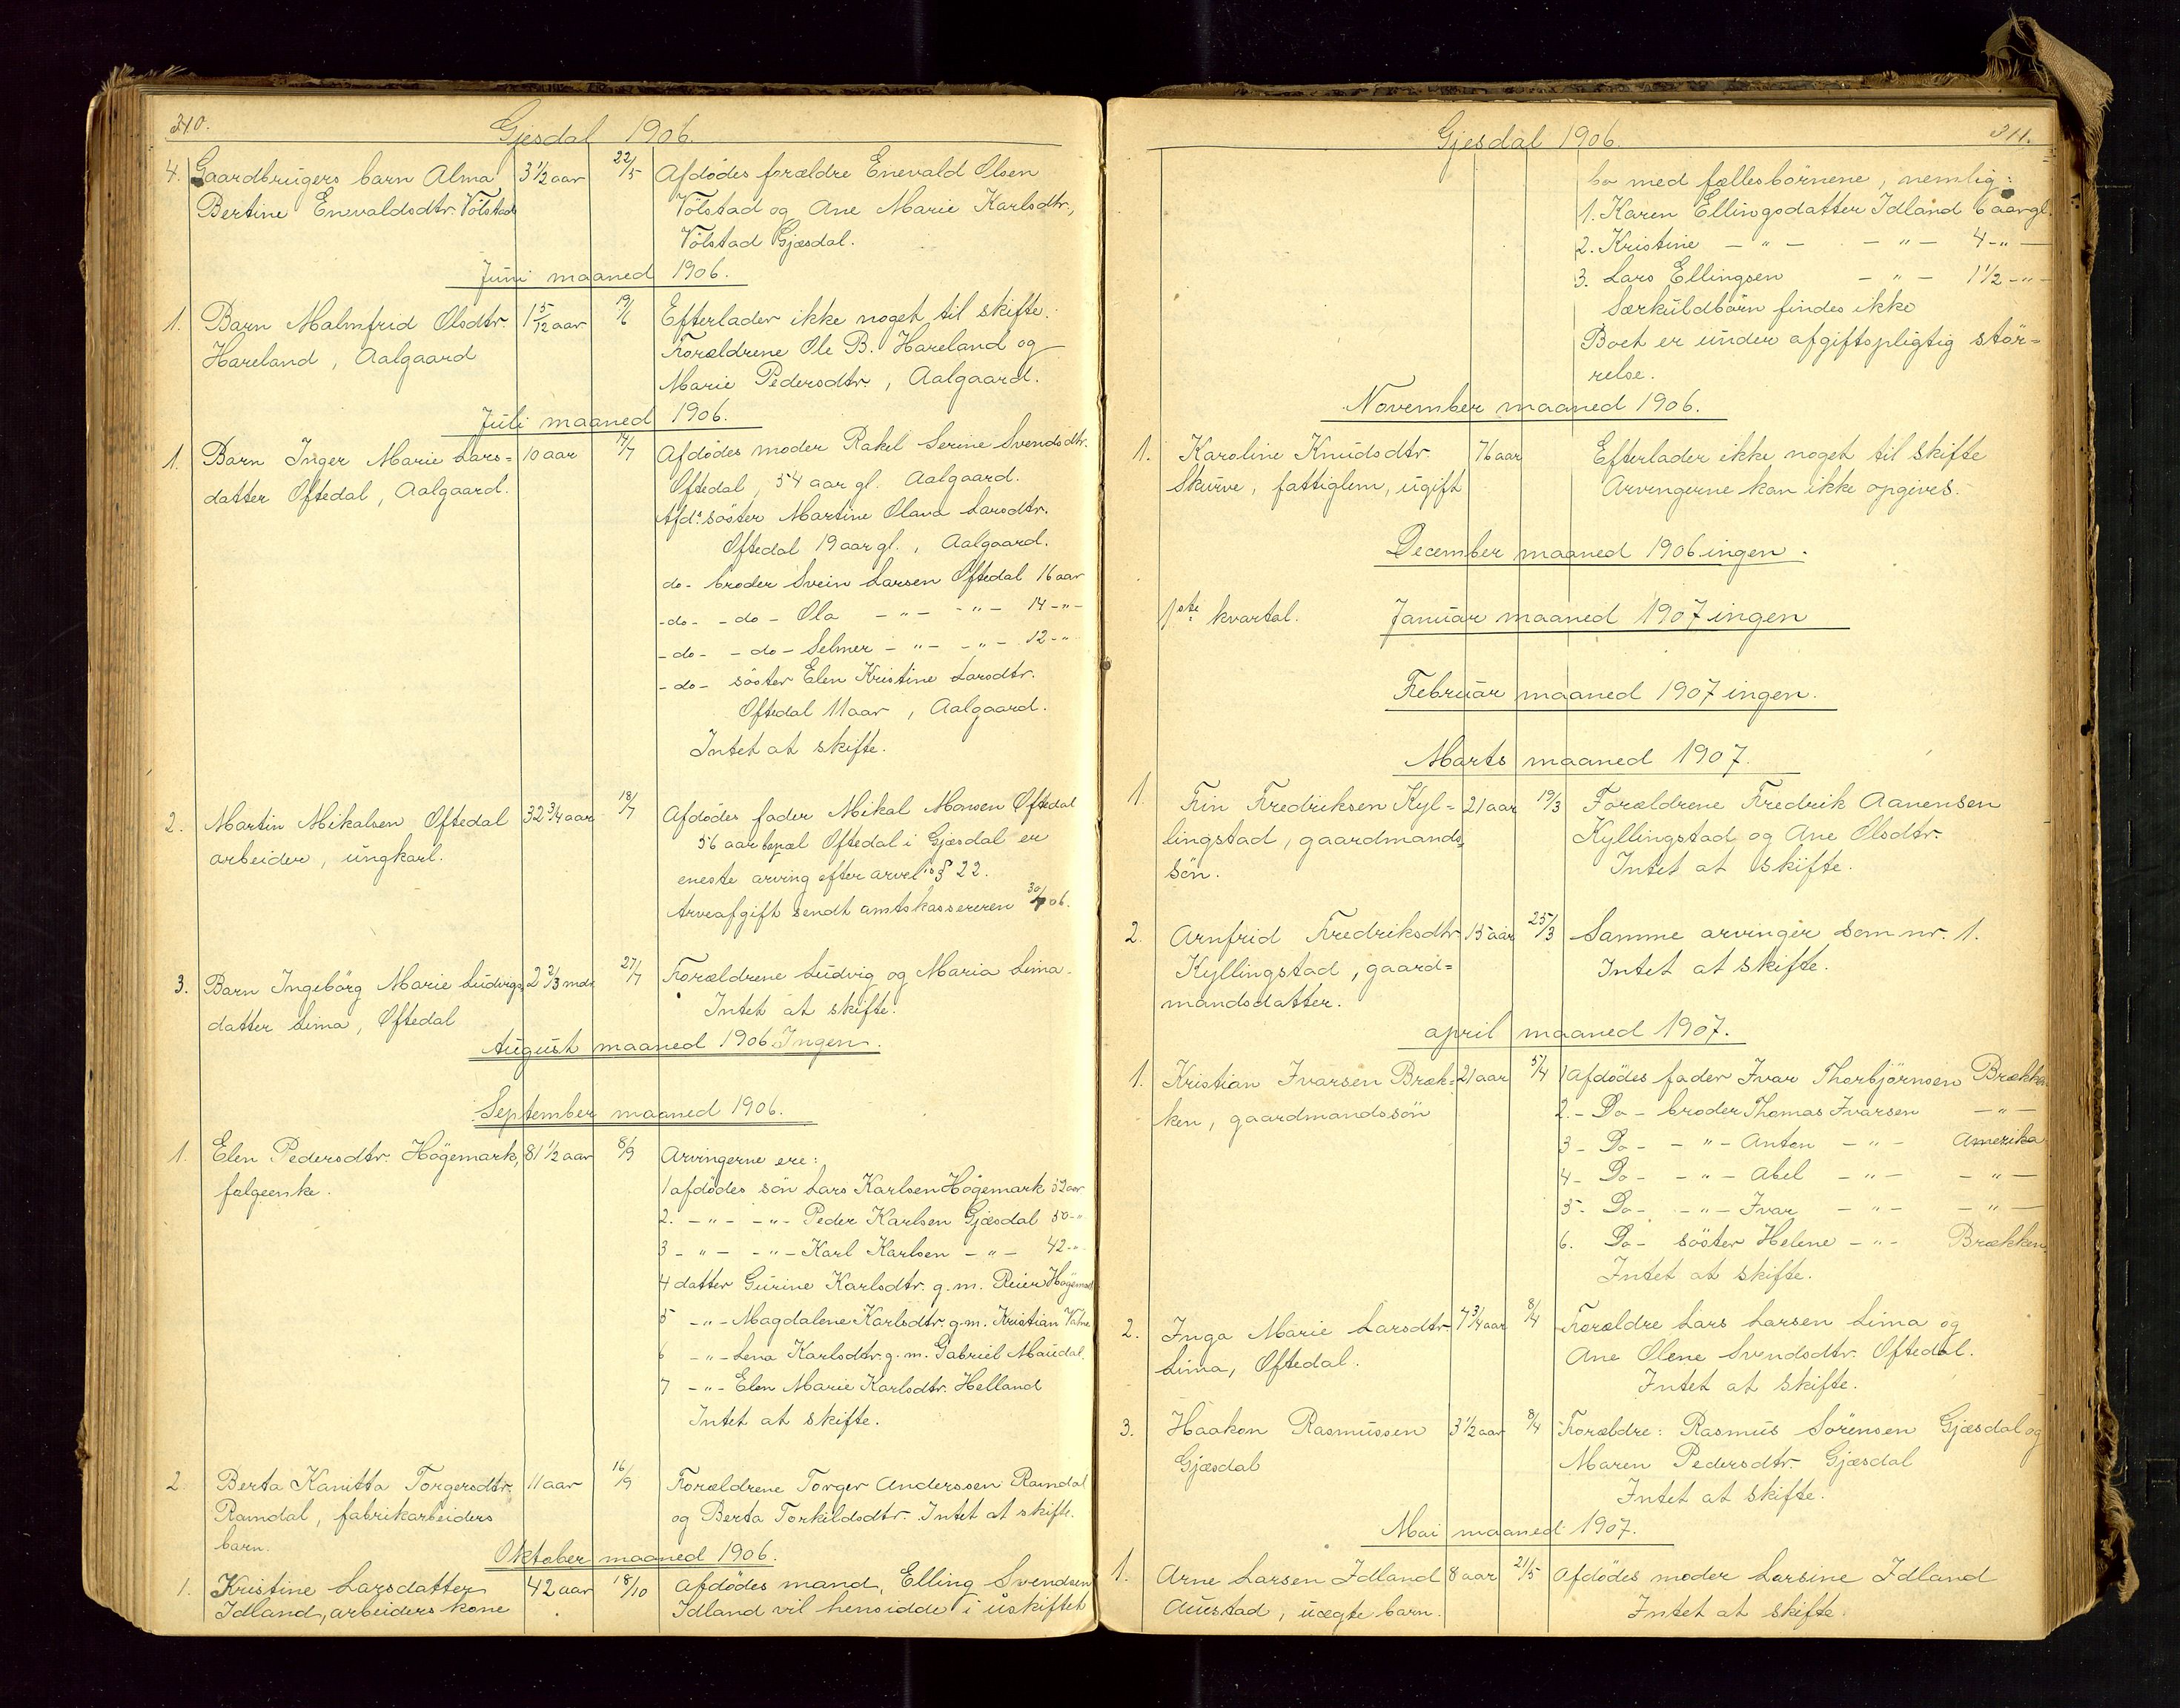 340.
Gjesdal 1906.
4. Gaardbrugers barn Alma 3 1/2 aar 22/5 Afdødes forældre Enevald Olsen
Bertine Enevaldsdtr. Völstad Völstad og Ane Marie Karlsdtr.,
Völstad Gjæsdal.
Juni maaned 1906.
1. Barn Malmfrid Olsdtr. 1 5/12 aar 19/6 Efterlader ikke noget til skifte.
Hareland, Aalgaard Forældrene Ole B. Hareland og
Marie Pedersdtr., Aalgaard.
Juli maaned 1906.
1. Barn Inger Marie Lars= 10 aar 14/7 Afdødes moder Rakel Serine Svendsdtr.
datter Oftedal, Aalgaard. Oftedal, 54 aar gl. Aalgaard.
Afds söster Martine Olava Larsdtr.
Oftedal 19 aar gl., Aalgaard.
do- broder Svein Larsen Oftedal 16 aar
-do- -do- Ola -"- -"- 14 -"-
-do- -do- Selmer -"- -"- 12 -"-
-do- söster Elen Kristine Larsdtr.
Oftedal 11 aar, Aalgaard.
Intet at skifte.
2. Martin Mikalsen Oftedal 32 3/4 aar 18/7 Afdødes fader Mikal Monsen Oftedal
arbeider, ungkarl. 56 aar bopæl Oftedal i Gjæsdal er
eneste arving efter arvel.s § 22.
Arveafgift sendt amtskassereren 30/7 06.
3. Barn Ingebörg Marie Ludvigs= 2 2/3 mdr. 27/7 Forældrene Ludvig og Maria Lima.
datter Lima, Oftedal Intet at skifte.
August maaned 1906 Ingen.
September maaned 1906.
1. Elen Pedersdtr. Högemark, 81 1/2 aar 8/9 Arvingerne ere:
folgeenke. 1 afdødes sön Lars Karlsen Högemark 52 aar
2. -"- -"- Peder Karlsen Gjæsdal 50 -"-
3 -"- -"- Karl Karlsen -"- 42 -"-
4 datter Gurine Karlsdtr. g. m. Reier Högemark
5 -"- Magdalene Karlsdtr. g. m. Kristian Vatne
6 -"- Lena Karlsdtr. g. m. Gabriel Maudal.
7 -"- Elen Marie Karlsdtr. Helland
Intet at skifte.
2 Berta Kanutta Torgersdtr. 11 aar 16/9 Forældrene Torger Anderssen Ramdal
Ramdal, fabrikarbeiders og Berta Torkildsdtr. Intet at skifte.
barn.
Oktober maaned 1906.
1. Kristine Larsdatter 42 aar 18/10 Afdødes mand, Elling Svendsen
Idland, arbeiders kone Idland vil hensidde i uskiftet
Gjesdal 1906. 341.
bo med fællesbörnene, nemlig:
1. Karen Ellingsdatter Idland 6 aar gl.
2. Kristine -"- -"- 4 -"-
3. Lars Ellingsen -"- 1 1/2 -"-
Særkuldbörn findes ikke
Boet er under afgiftspligtig stör=
relse.
November maaned 1906.
1. Karoline Knudsdtr. 76 aar Efterlader ikke noget til skifte
Skurve, fattiglem, ugift Arvingerne kan ikke opgives.
December maaned 1906 ingen.
1ste kvartal. Januar maaned 1907 ingen
Februar maaned 1907 ingen.
Marts maaned 1907.
1. Fin Fredriksen Kyl= 21 aar 19/3 Forældrene Fredrik Aanensen
lingstad, gaardmands= Kyllingstad og Ane Olsdtr.
sön. Intet at skifte.
2. Arnfrid Fredriksdtr 15 aar 25/3 Samme arvinger som nr. 1.
Kyllingstad, gaard= Intet at skifte.
mandsdatter.
april maaned 1907.
1. Kristian Ivarsen Bræk= 21 aar 5/4 1 Afdødes fader Ivar Thorbjörnsen Brækken
ken, gaardmandssön 2. - Do - broder Thomas Ivarsen -"-
3 - Do - -"- Anton -"- Amerika
4 - Do - -"- Abel -"- -"-
5 - Do - -"- Ivar -"- -"-
6. Do - söster Helene -"- Brækken.
Intet at skifte.
2. Inga Marie Larsdtr. 7 3/4 aar 8/4 Forældre Lars Larsen Lima og
Lima, Oftedal. Ane Olene Svendsdtr. Oftedal.
Intet at skifte.
3. Haakon Rasmussen 3 1/2 aar 8/4 Forældre: Rasmus Sörensen Gjæsdal og
Gjæsdal Maren Pedersdtr. Gjæsdal
Intet at skifte.
Mai maaned 1907.
1. Arne Larsen Idland 8 aar 21/5 Afdødes moder Larsine Idland
Austad, uægte barn. Intet at skifte.